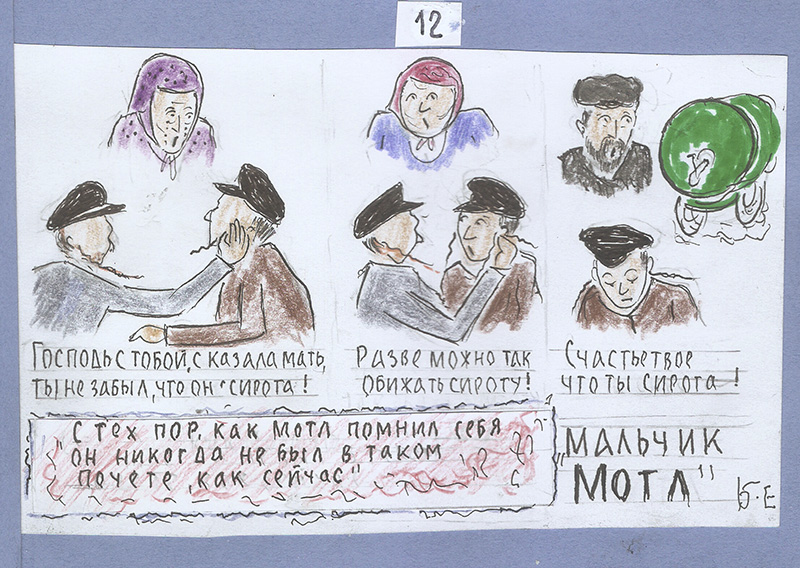 12
ГОСПОДЬ С ТОБОЙ, СКАЗАЛА МАТЬ,
ТЫ НЕ ЗАБЫЛ, ЧТО ОН "СИРОТА!
РАЗВЕ МОЖНО ТАК
ОБИЖАТЬ СИРОТУ!
СЧАСТЬЕ ТВОЕ
ЧТО ТЫ СИРОТА!
"С ТЕХ ПОР, КАК МОТЛ ПОМНИЛ СЕБЯ
ОН НИКОГДА НЕ БЫЛ В ТАКОМ
ПОЧЕТЕ, КАК СЕЙЧАС"
"МАЛЬЧИК
МОТЛ"
Б.Е